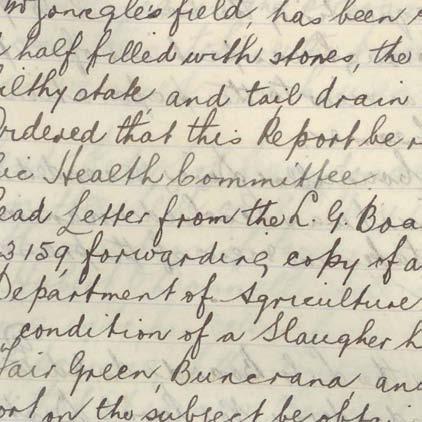 McGonegle's field, has been
half filled with stones, the
filthy state, and tail drain
Ordered that this Report be r
lic Health Committee.
ead Letter from the L. G. Boa
3159, forwarding copy of a
Department of Agriculture
condition of a Slaugher h
Fair Green, Buncrana, and
ort on the subject be obtai